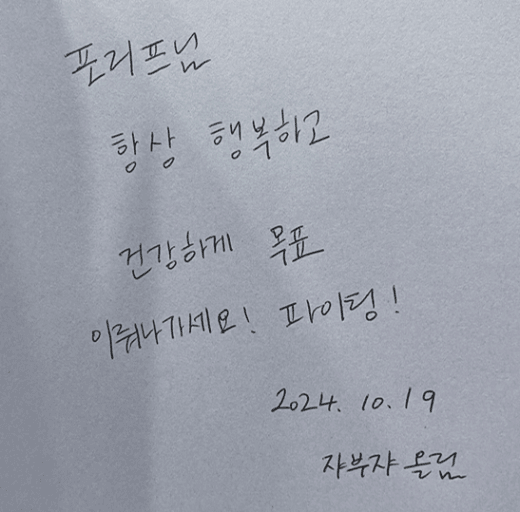 포리프님
항상 행복하고
건강하게 목표
이뤄나가세요! 파이팅!
2024. 10. 19
쟈부쟈 올림